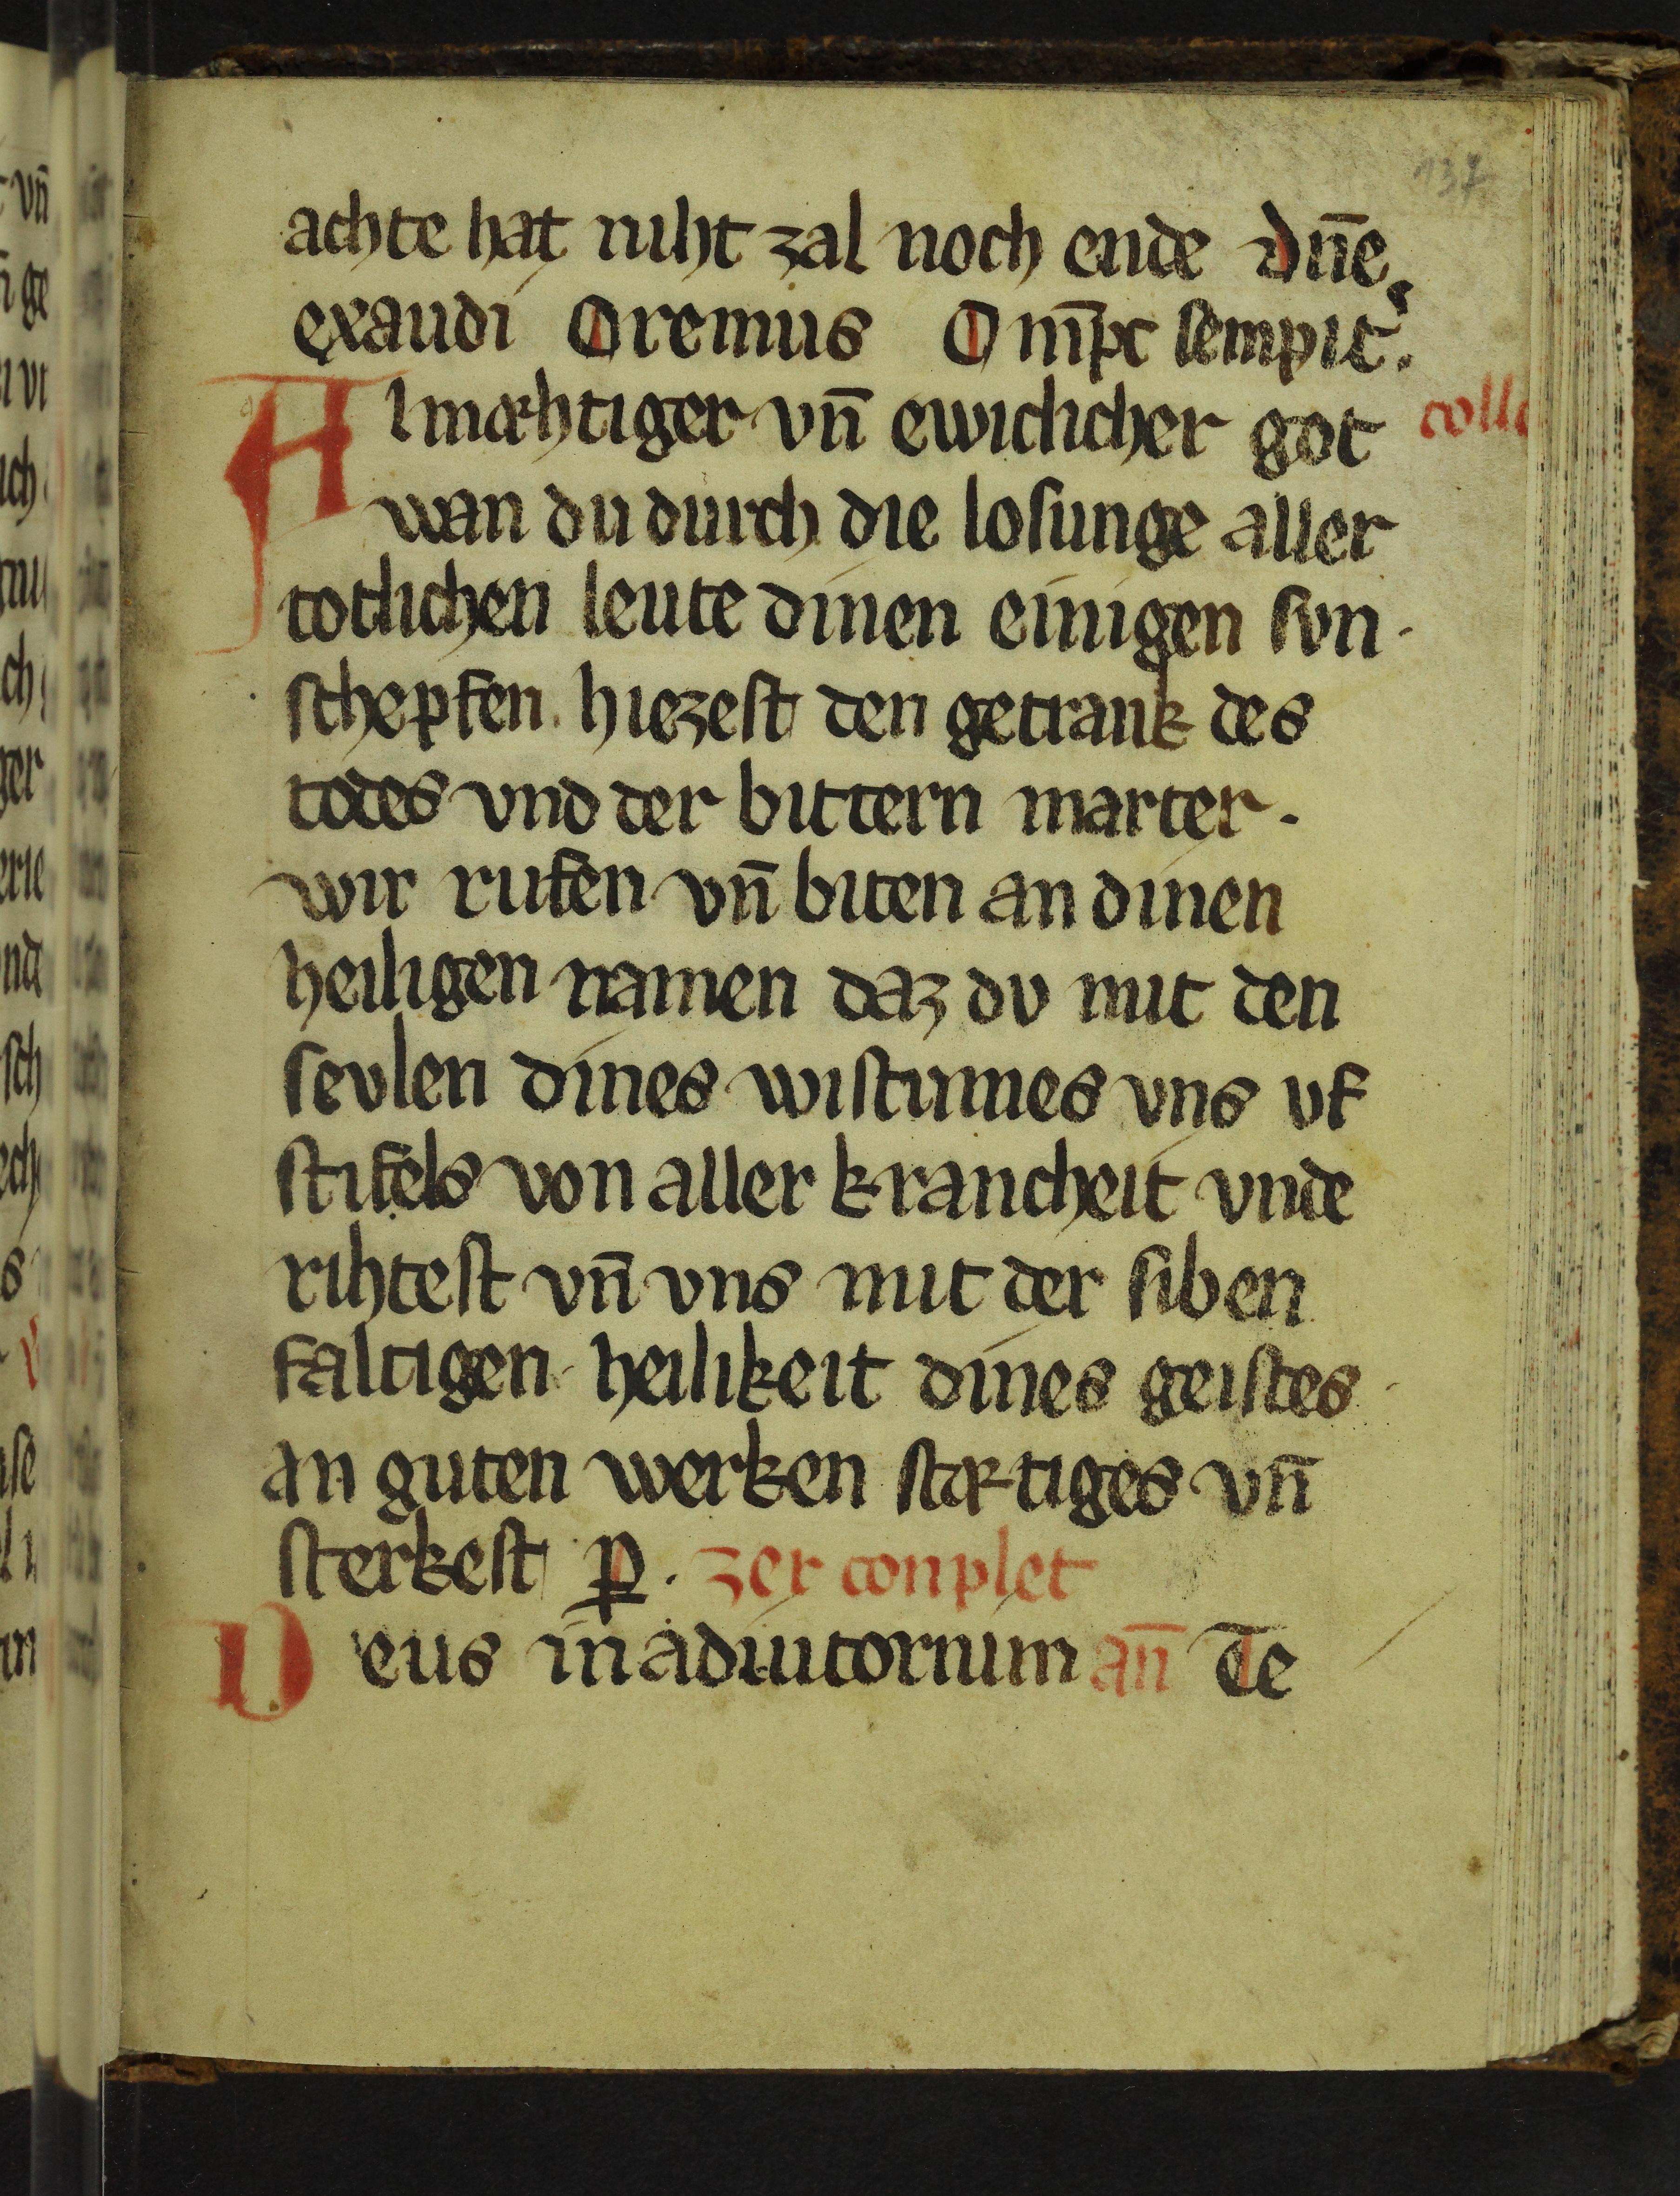 137
achte hat niht zal noch ende Dn̄e
exaudi Oremus Om̄ps sempit.
Almæhtiger vn̄ ewiclicher got colle
wan du durch die losunge aller
totlichen leute dinen einigen svn
schepfen hiezest den getrank des
todes vnd der bittern marter.
wir rufen vn̄ biten an dinen
heiligen namen daz dv mit den
sevlen dines wistumes vns vf
stifels von aller krancheit vnde
rihtest vn̄ vns mit der siben
faltigen heilikeit dines geistes
an guten werken stætiges vn̄
sterkest p̱. zer conplet
Deus in adiutorium an̄ Te